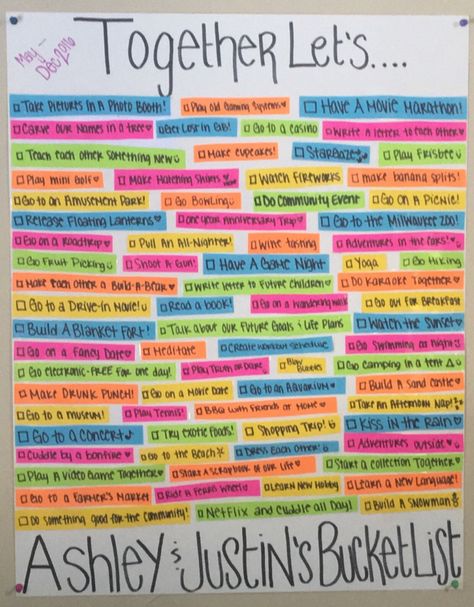 Together Let's....
May - Dec 2016
☐ Take Pictures In A Photo Booth! ☐ Play Old Gaming Systems♥ ☐ Have A Movie Marathon!
☐ Carve Our Names in a tree♥ ☐ Get Lost in GR! ☐ Go to a casino ☐ Write A letter to each other♥
☐ Teach each other something new☺ ☐ Make cupcakes! ☐ Stargaze ☐ Play Frisbee☺
☐ Play mini Golf♥ ☐ Make Matching Shirts ☐ Watch Fireworks ☐ make banana splits!
☐ Go to an Amusement Park! ☐ Go Bowling ☐ Do Community Event ☐ Go On A Picnic!
☐ Release Floating Lanterns♥ ☐ one year anniversary Trip♥ ☐ Go to the Milwaukee Zoo!
☐ Go on a Roadtrip♥ ☐ Pull An All-Nighter! ☐ Wine tasting ☐ Adventures in the
☐ Go Fruit Picking☺ ☐ Shoot A Gun! ☐ Have A Game Night ☐ Yoga ☐ Go Hiking
☐ Make Each other a Build-A-Bear♥ ☐ Write letter to Future Children♥ ☐ Do Karaoke Together♥
☐ Go to a Drive-In Movie!☺ ☐ Read a book! ☐ Go on a wandering walk ☐ Go out for Breakfast
☐ Build A Blanket Fort! ☐ Talk about our Future Goals & Life Plans ☐ Watch the Sunset♥
☐ Go on a Fancy Date♥ ☐ Meditate ☐ Create workout schedule ☐ Go Swimming at Night
☐ Go electronic-FREE for one day! ☐ Play Truth or Dare ☐ Blow Bubbles ☐ Go Camping in a tent △
☐ Make DRUNK PUNCH! ☐ Go on a Movie Date ☐ Go to an Aquarium♥ ☐ Build A Sand castle♥
☐ Go to a museum! ☐ Play Tennis! ☐ BBQ with Friends at Home♥ ☐ Take An Afternoon Nap!
☐ Go to a Concert♥ ☐ Try exotic Foods! ☐ Shopping Trip!☺ ☐ Kiss in the Rain♥
☐ Cuddle by a bonfire♥ ☐ Go to the Beach☀ ☐ Dress Each Other!☺ ☐ Adventures outside♥
☐ Play A Video Game Together♥ ☐ Start A Scrapbook of our Life♥ ☐ Start a Collection Together♥
☐ Go to a Farmer's Market ☐ Ride A Ferris Wheel☺ ☐ Learn New Hobby ☐ Learn a New Language!
☐ Do something good for the community! ☐ Netflix and cuddle all Day! ☐ Build A Snowman
Ashley & Justin's Bucket List